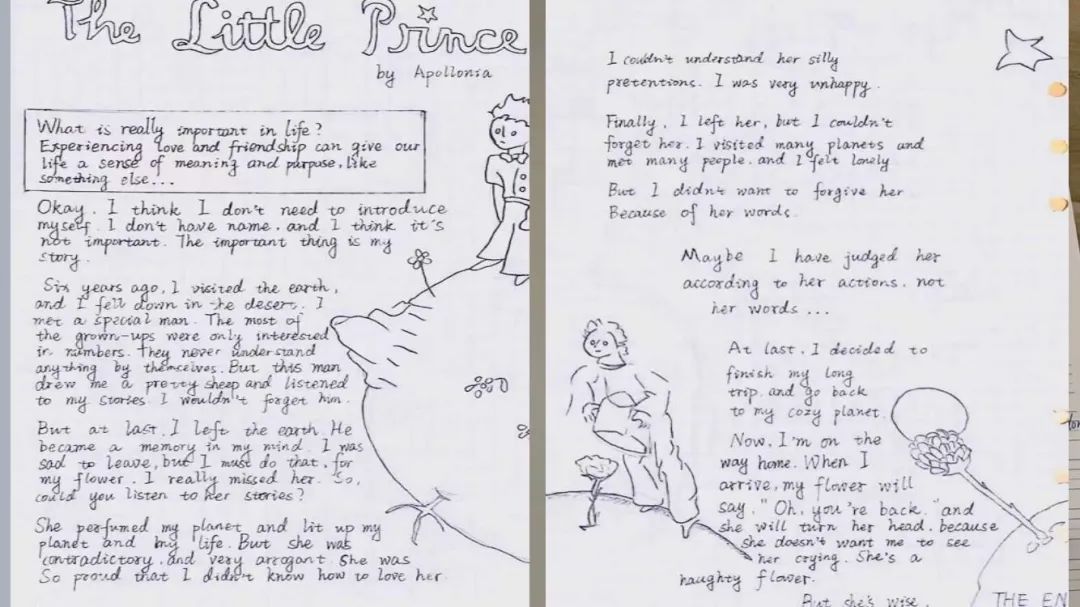 The Little Prince
by Apollonia
What is really important in life?
Experiencing love and friendship can give our
life a sense of meaning and purpose, like
something else...
Okay. I think I don't need to introduce
myself. I don't have name, and I think it's
not important. The important thing is my
story.
Six years ago, I visited the earth,
and I fell down in the desert. I
met a special man. The most of
the grown-ups were only interested
in numbers. They never understand
anything by themselves. But this man
drew me a pretty sheep and listened
to my stories. I wouldn't forget him.
But at last, I left the earth. He
became a memory in my mind. I was
sad to leave, but I must do that, for
my flower. I really missed her. So,
could you listen to her stories?
She perfumed my planet and lit up my
planet and my life. But she was
contradictory, and very arrogant. She was
So proud that I didn't know how to love her.
I couldn't understand her silly
pretentions. I was very unhappy.
Finally, I left her, but I couldn't
forget her. I visited many planets and
met many people, and I felt lonely
But I didn't want to forgive her
Because of her words.
Maybe I have judged her
according to her actions, not
her words...
At last, I decided to
finish my long
trip, and go back
to my cozy planet.
Now, I'm on the
way home. When I
arrive, my flower will
say, "Oh, you're back," and
she will turn her head, because
she doesn't want me to see
her crying. She's a
naughty flower.
But she's wise.
THE EN